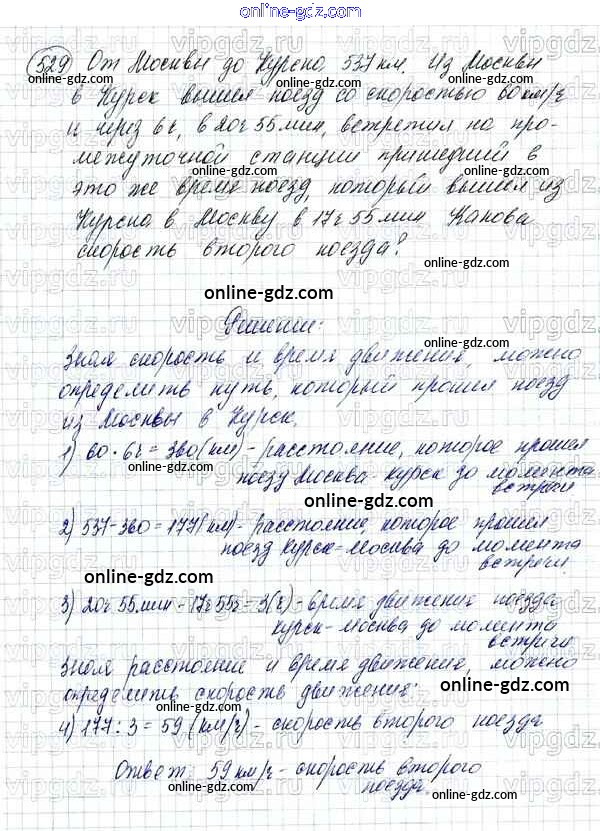 online-gdz.com
529 От Москвы до Курска 537 км. Из Москвы
в Курск вышел поезд со скоростью 60 км/ч
и через 6ч, в 20ч 55 мин, встретил на про-
межуточной станции пришедший в
это же время поезд, который вышел из
Курска в Москву в 17ч 55 мин. Какова
скорость второго поезда?
online-gdz.com
Решение:
Зная скорость и время движения, можно
определить путь, который прошел поезд
из Москвы в Курск.
1) 60 · 6ч = 360 (км) - расстояние, которое прошел
поезд Москва - Курск до момента
встречи
2) 537-360 = 177 (км) - расстояние, которое прошел
поезд Курск-Москва до момента
встречи.
3) 20ч 55 мин - 17ч 55ч = 3(ч) - время движение поезда
Курск-Москва до момента
встречи
Зная расстояние и время движение, можно
определить скорость движения:
4) 177 : 3 = 59 (км/ч) - скорость второго поезда
Ответ 59 км/ч - скорость второго
поезда.